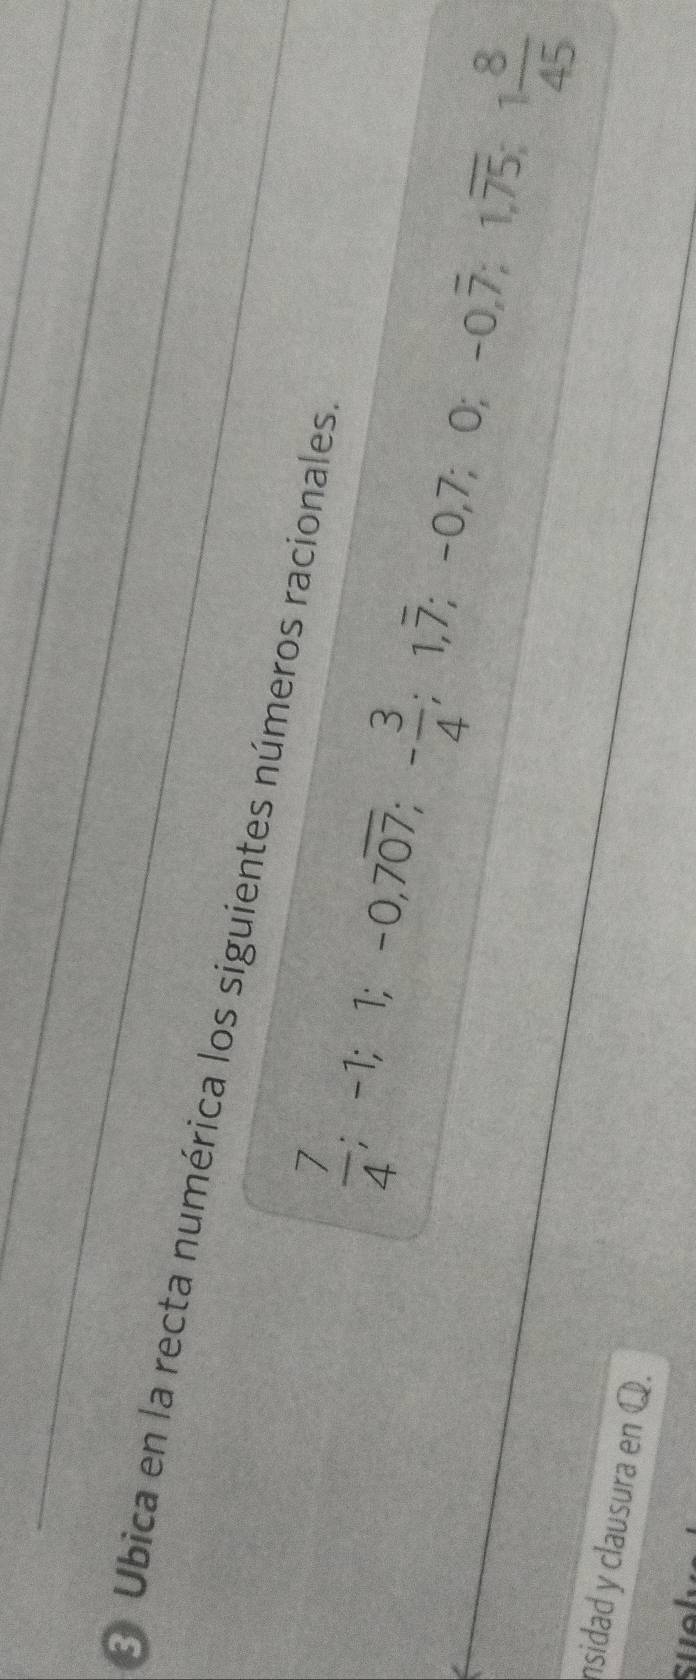 3 Ubica en la recta numérica los siguientes números racionales.
7/4; -1; 1; -0,7\overline{07}; -3/4; 1,\overline{7}; -0,7; 0; -0,\overline{7}; 1,\overline{75}; 1 8/45
nsidad y clausura en ℚ.